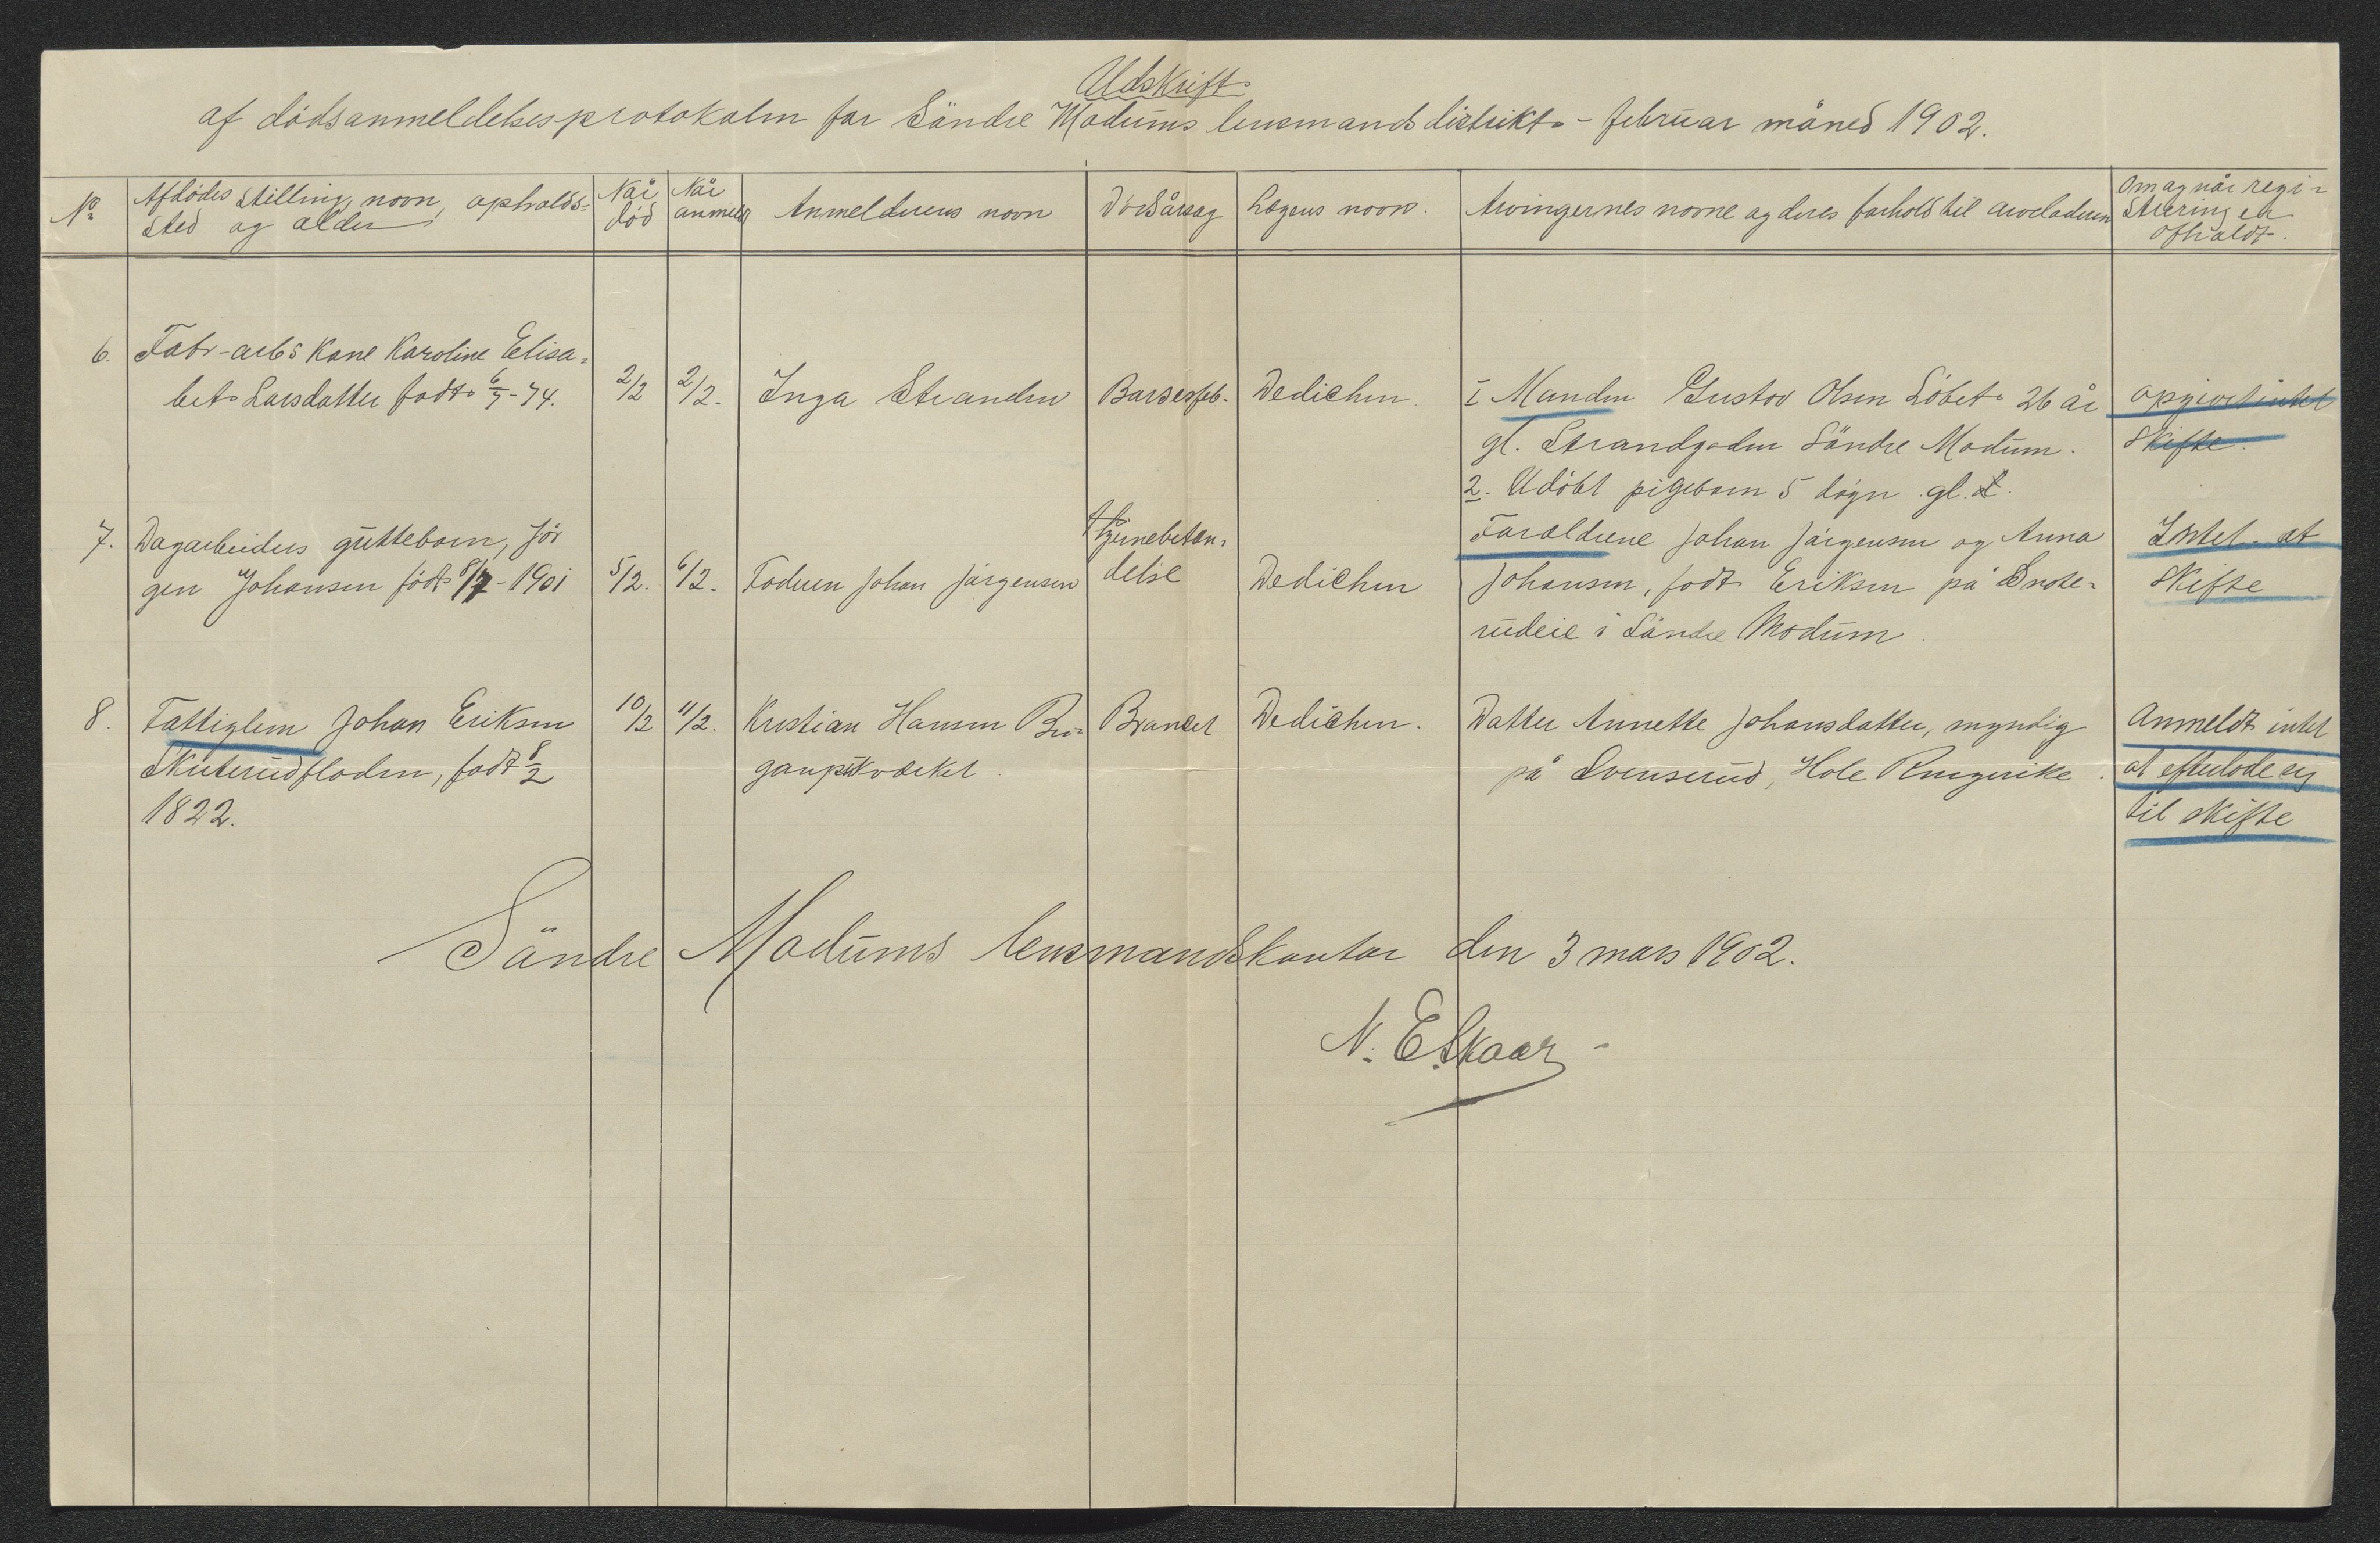 Udskrift
af dödsanmeldelsesprotokolen for Söndre Modums lensmandsdistrikt - februar måned 1902.
No
Afdødes stilling, navn, opholds=
sted og alder
Når
død
Når
anmeldt
Anmelderens navn
Dødsårsag
Lægens navn.
Arvingernes navne og deres forhold til arveladeren
Om og når regi=
strering er
afholdt.
6.
Fabr-arbs kone Karoline Elisa=
bet Larsdatter født 6/5-74.
2/2
2/2.
Inga Stranden
Barselsfeb.
Dedichen.
1 Manden Gustav Olsen Löbet 26 år
gl. Strandgaden Söndre Modum.
2. Udöbt pigebarn 5 døgn gl.
opgivet intet
skifte.
7.
Dagarbeiders guttebarn, Jör
gen Johansen født 8/7-1901
5/2.
6/2.
Faderen Johan Jörgensen
Hjernebetæn=
delse
Dedichen
Forældrene Johan Jörgensen og Anna
Johansen, født Eriksen på Snare=
rudeie i Söndre Modum.
Intet at
skifte
8.
Fattiglem Johan Eriksen
Skuterudfladen, født 8/2
1822.
10/2
11/2.
Kristian Hansen Bu=
ganpåværket.
Brandt
Dedichen.
Datter Annette Johansdatter, myndig
på Svenserud, Hole Ringerike.
Anmeldt intet
at efterlade sig
til skifte
Söndre Modums lensmandskontor den 3 mars 1902.
N. E. Skaar